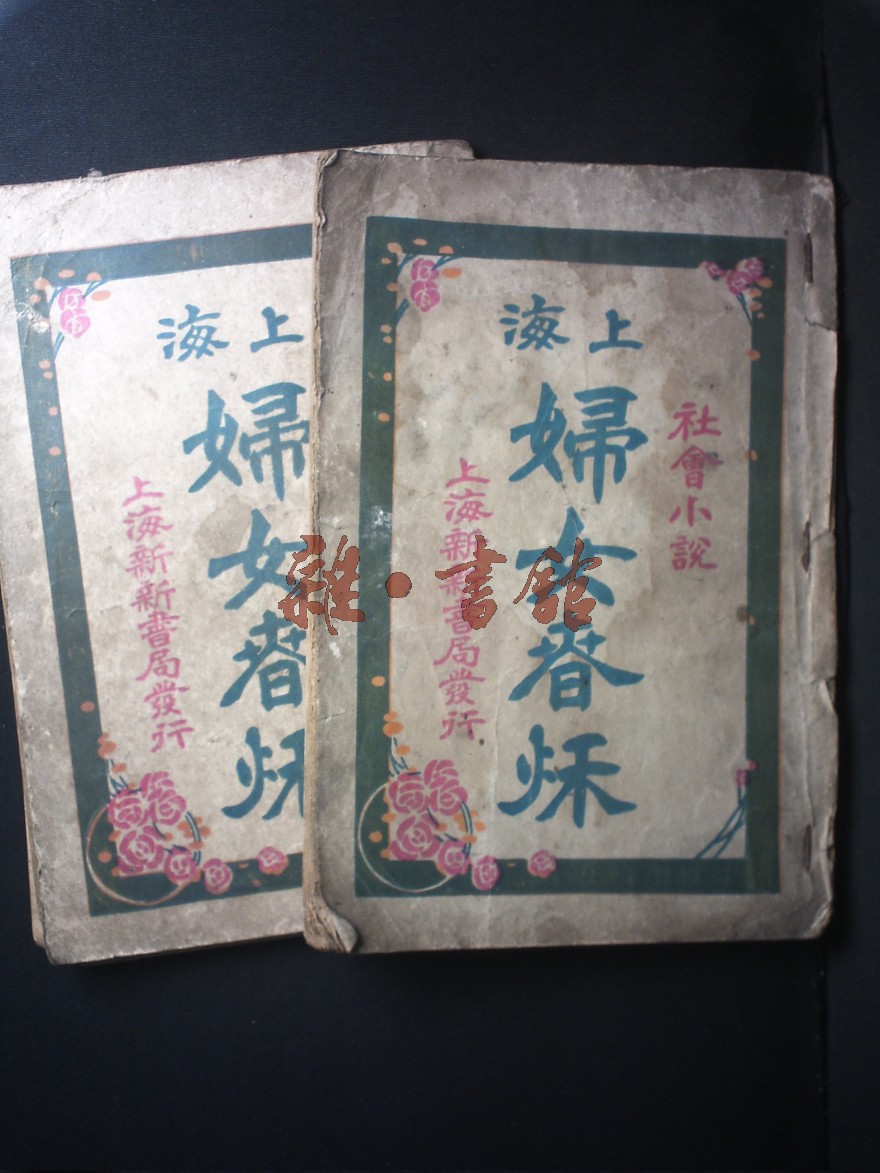 社會小說
上海
婦女春秌
上海新新書局發行
上海
婦女春秌
上海新新書局發行
雜·書館